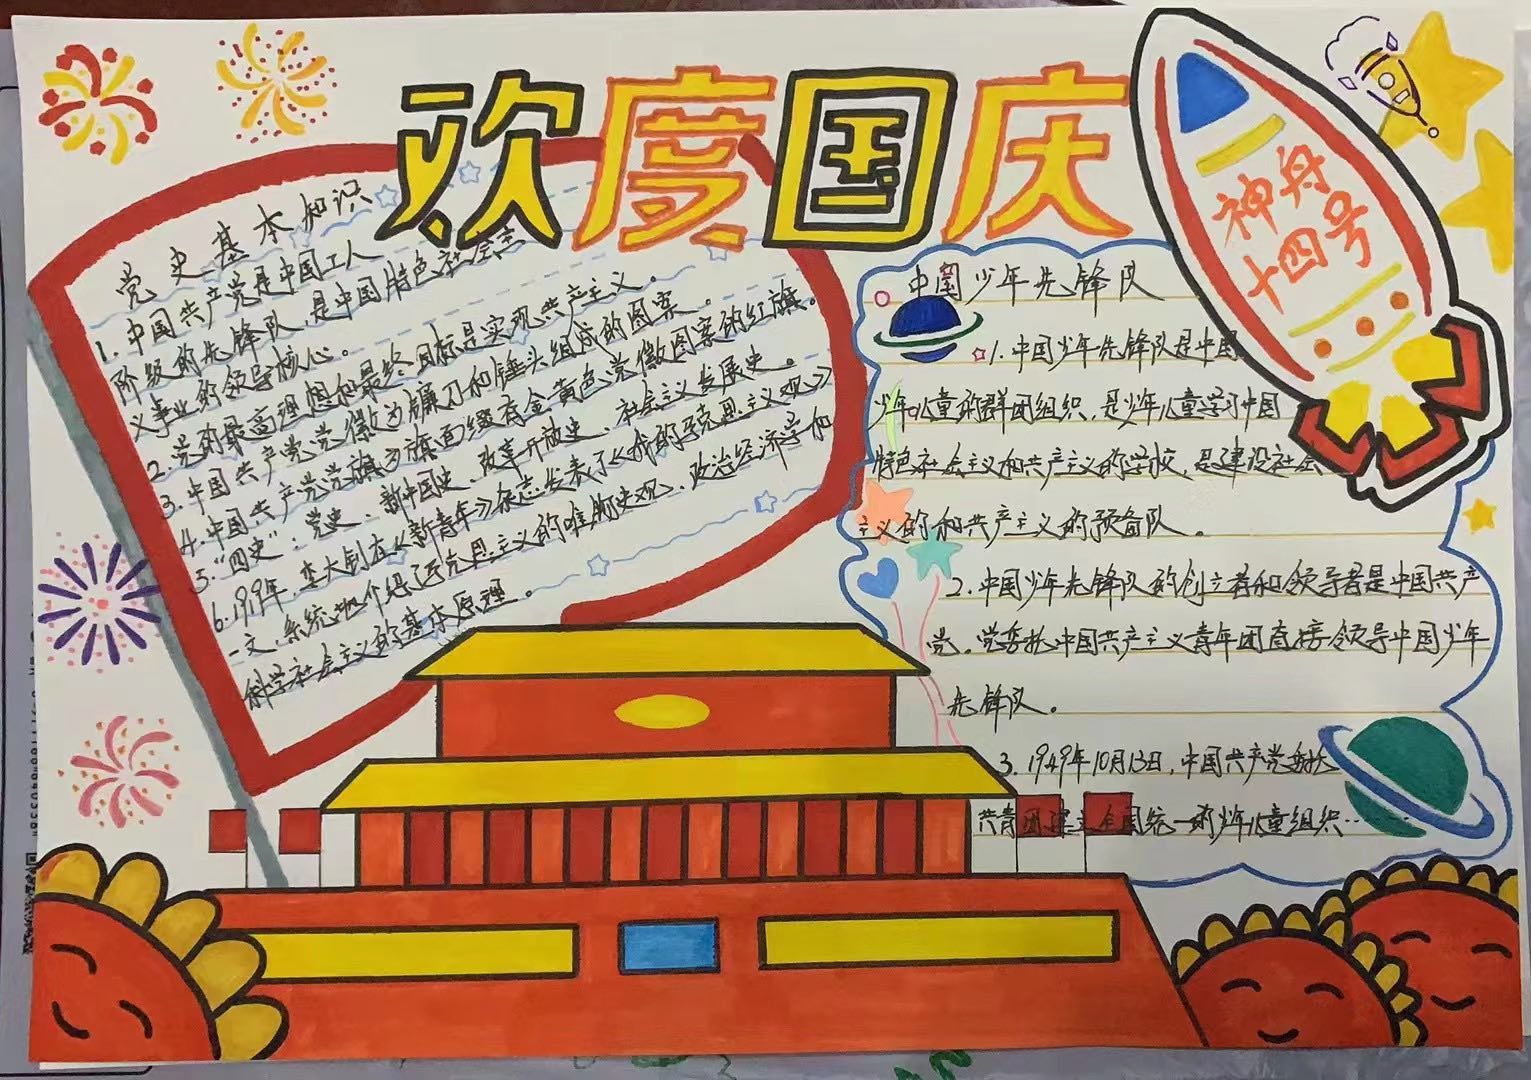 欢度国庆
神舟
十四号
党史基本知识
1.中国共产党是中国工人
阶级的先锋队,是中国特色社会主
义事业的领导核心。
2.党的最高理想和最终目标是实现共产主义。
3.中国共产党党徽为镰刀和锤头组成的图案。
4.中国共产党党旗为旗面缀有金黄色党徽图案的红旗。
5."四史":党史、新中国史、改革开放史、社会主义发展史。
6.1919年,李大钊在《新青年》杂志发表了《我的马克思主义观》
一文,系统地介绍了马克思主义的唯物史观、政治经济学和
科学社会主义的基本原理。
中国少年先锋队
1.中国少年先锋队是中国
少年儿童的群团组织,是少年儿童学习中国
特色社会主义和共产主义的学校,是建设社会
主义的和共产主义的预备队。
2.中国少年先锋队的创立者和领导者是中国共产
党。党委托中国共产主义青年团直接领导中国少年
先锋队。
3.1949年10月13日,中国共产党委托
共青团建立全国统一的少年儿童组织……